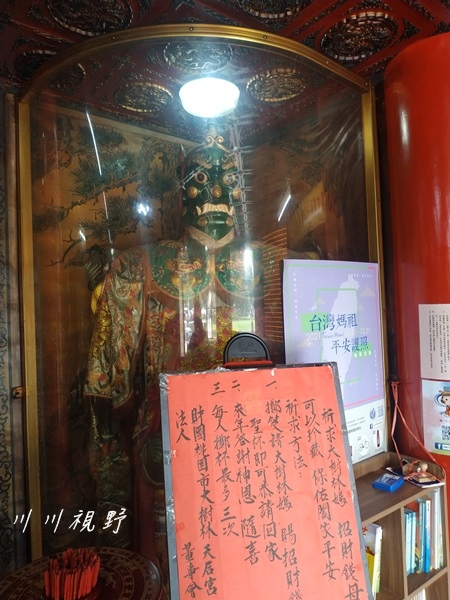 祈求大樹林媽 招財錢母
可以珍藏 保佑闔家平安
祈求方法:
一 擲筊請大樹林媽 賜招財錢
聖杯即可恭請回家
二 來年答謝神恩 隨喜
三 每人擲杯最多三次
財團法人桃園市大樹林天后宮 董事會
台灣媽祖
平安護照
川川視野